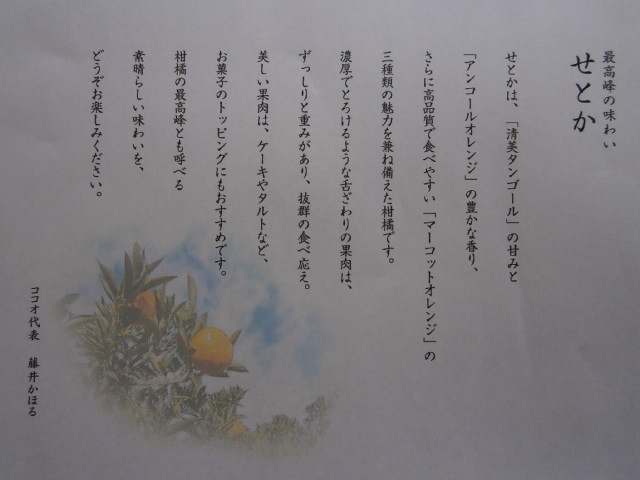 最高峰の味わい
せとか
せとかは、「清美タンゴール」の甘みと
「アンコールオレンジ」の豊かな香り、
さらに高品質で食べやすい「マーコットオレンジ」の
三種類の魅力を兼ね備えた柑橘です。
濃厚でとろけるような舌ざわりの果肉は、
ずっしりと重みがあり、抜群の食べ応え。
美しい果肉は、ケーキやタルトなど、
お菓子のトッピングにもおすすめです。
柑橘の最高峰とも呼べる
素晴らしい味わいを、
どうぞお楽しみください。
ココオ代表 藤井かほる